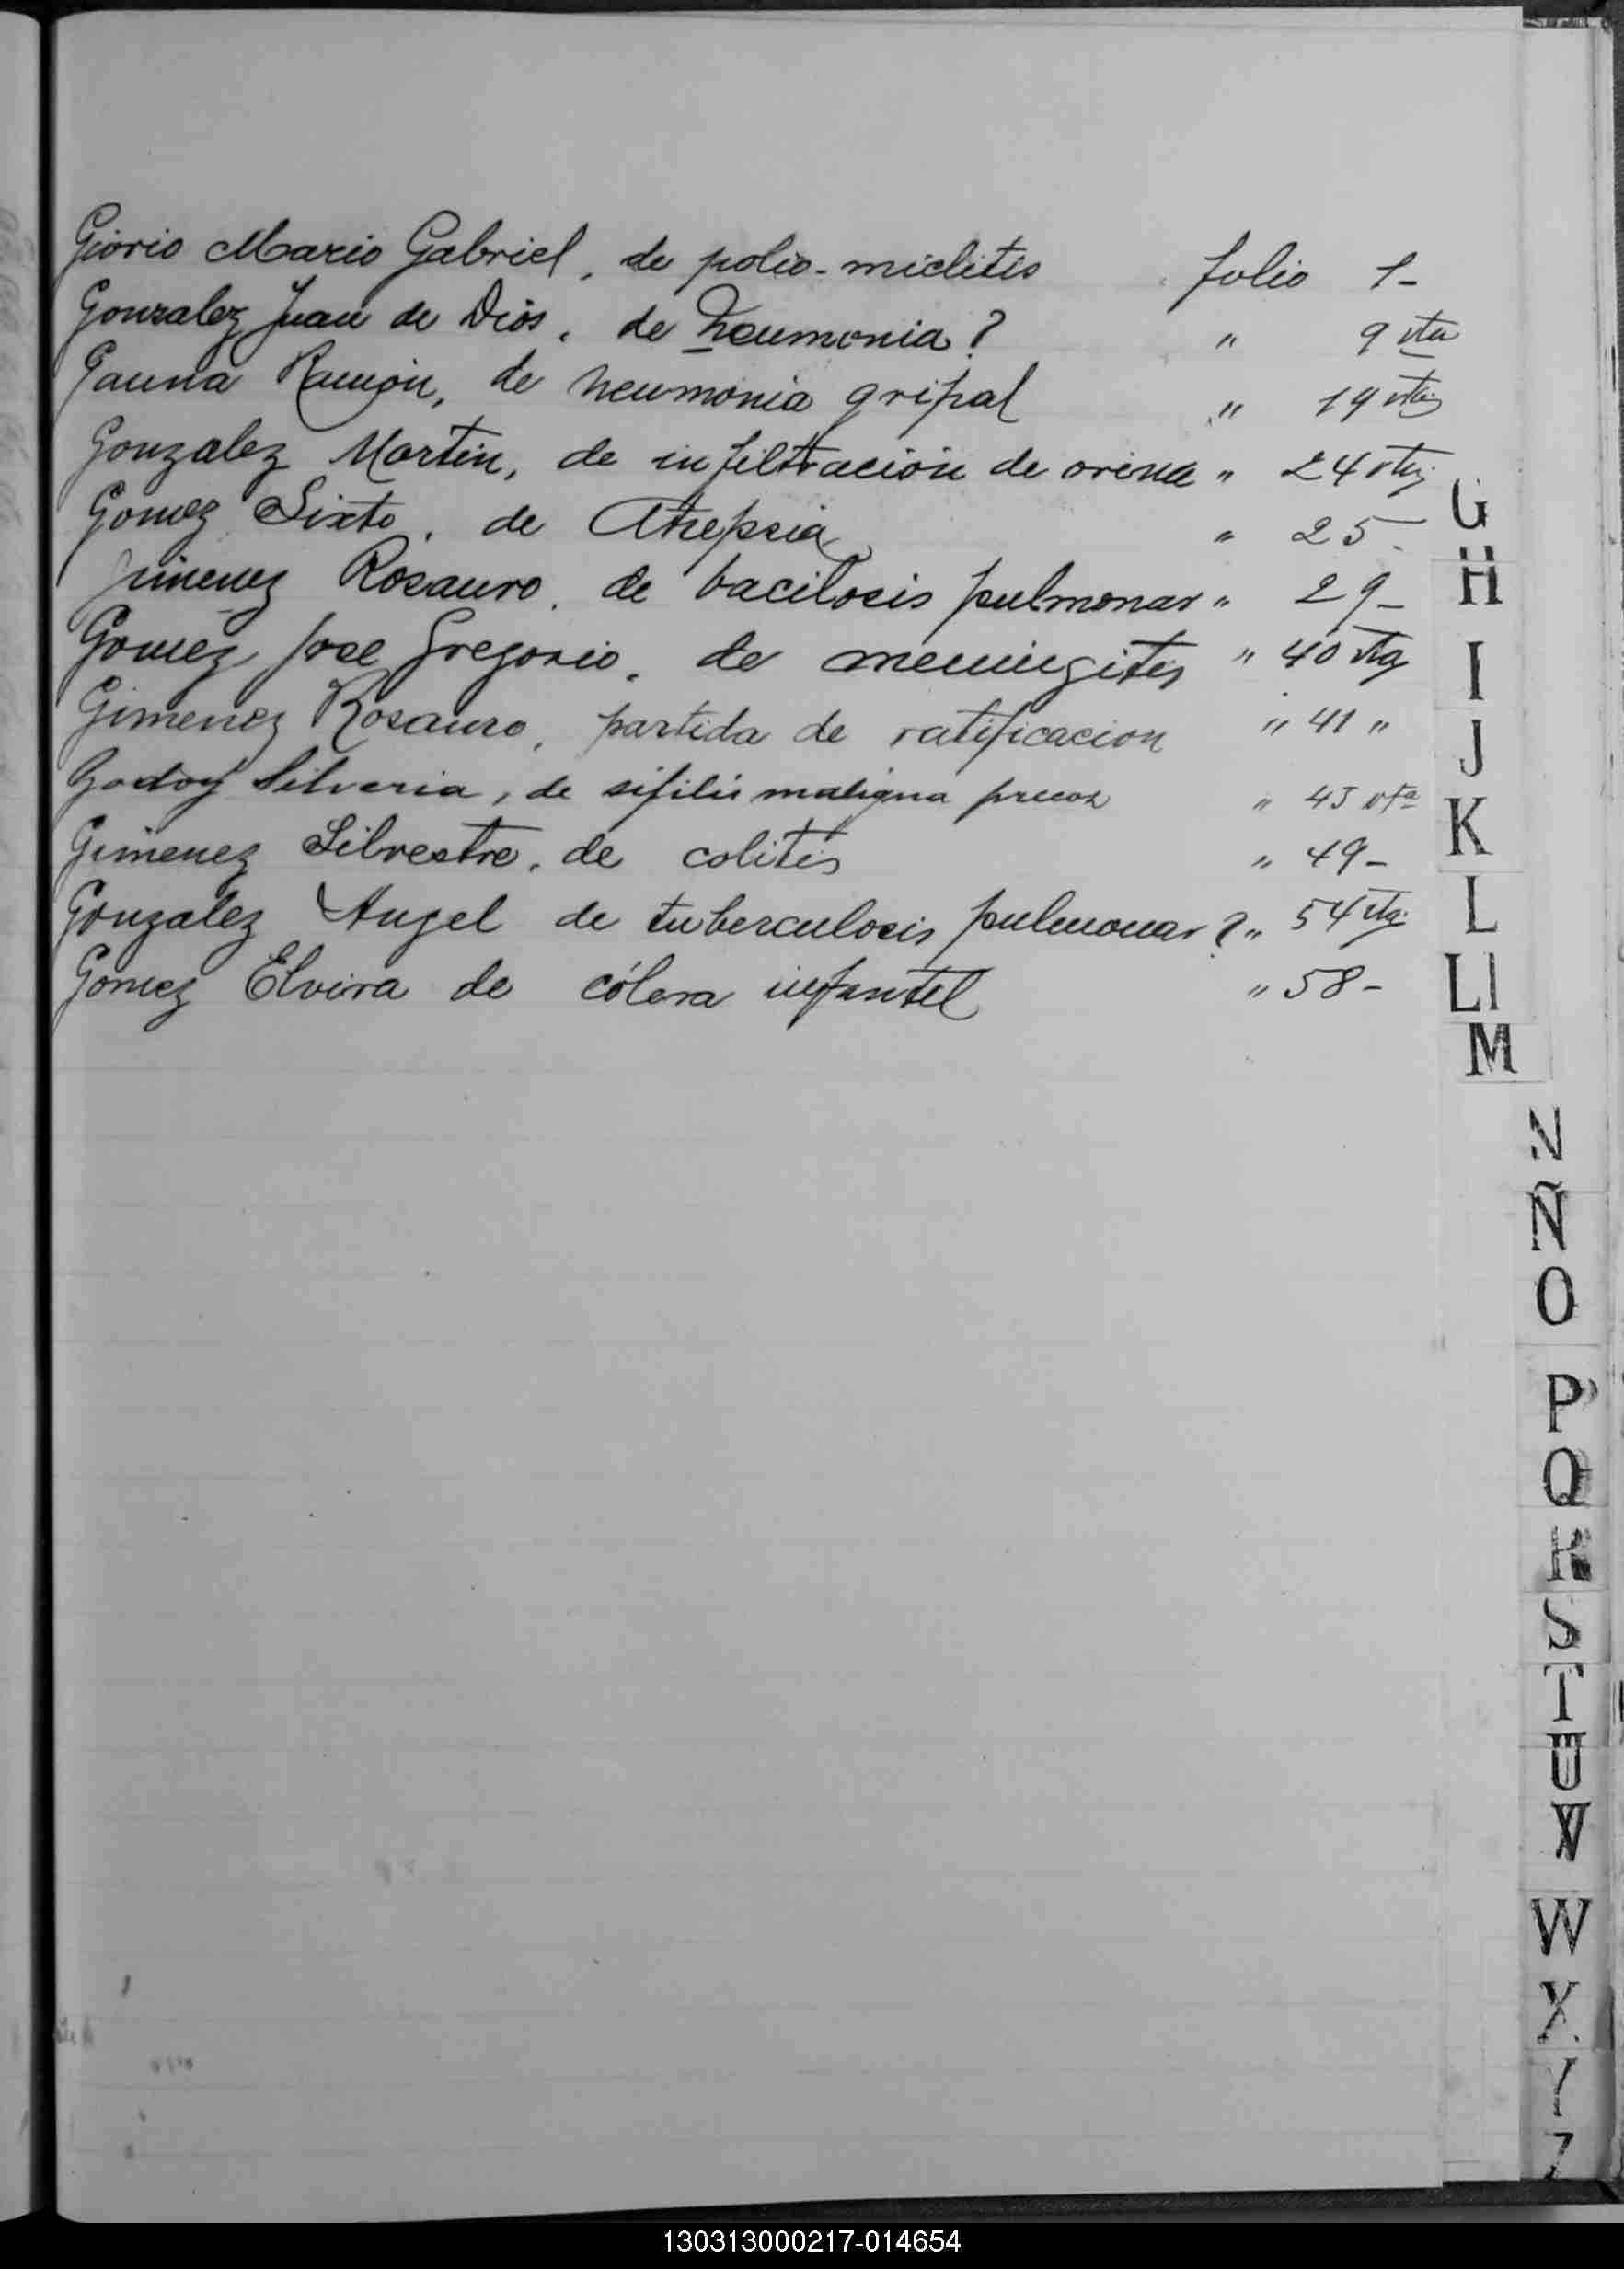 Giorio Mario Gabriel, de polio-mielitis folio 1-
Gonzalez Juan de Dios, de Neumonia? " 9 vta
Gauna Ramón, de neumonia gripal " 19 vta
Gonzalez Martin, de infiltración de orina " 24 vta
Gomez Sixto, de Atrepsia " 25-
Jimenez Rosauro, de bacilosis pulmonar " 29-
Gomez Jose Gregorio, de meningitis " 40 vta
Gimenez Rosauro, partida de ratificacion " 41 "
Godoy Silveria, de sifilis maligna precoz " 43 vta
Gimenez Silvestre, de colitis " 49-
Gonzalez Angel de tuberculosis pulmonar? " 54 vta
Gomez Elvira de cólera infantil " 58-
G
H
I
J
K
L
Ll
M
N
Ñ
O
P
Q
R
S
T
U
V
W
X
Y
Z
130313000217-014654